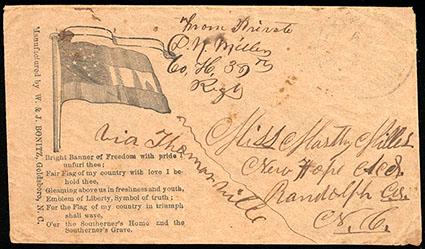 Manufactured by W. & J. BONITZ, Goldsboro, N. C.
From Private
Co. H. 38 Th
Regt
Via Thomasville
Miss Martha Miller
New Hope
Randolph Co.
N. C.
Bright Banner of Freedom with pride I
unfurl thee;
Fair Flag of my country with love I be
hold thee,
Gleaming above us in freshness and youth,
Emblem of Liberty, Symbol of truth;
For the Flag of my country in triumph
shall wave,
O'er the Southerner's Home and the
Southerner's Grave.